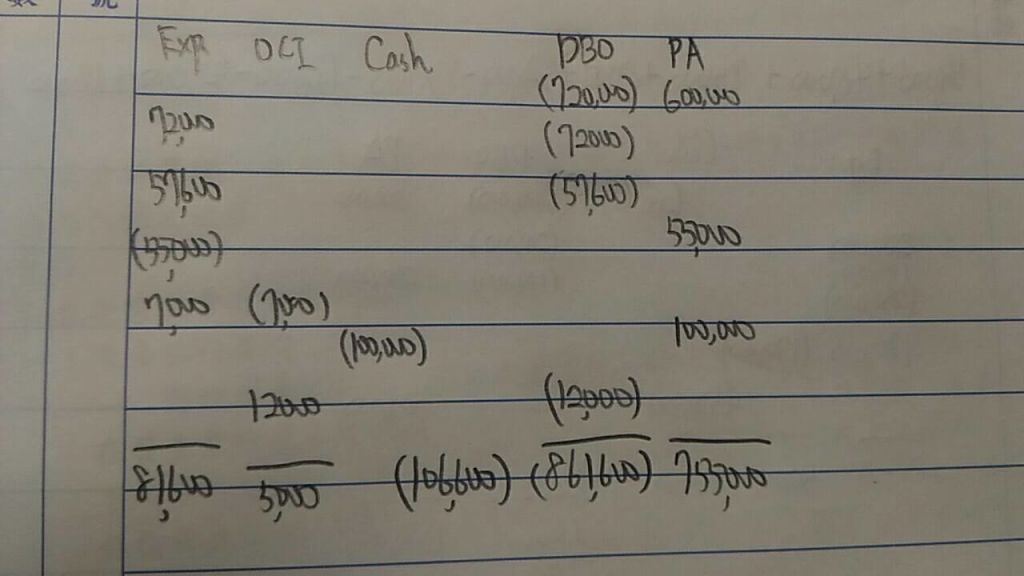 Exp OCI Cash DBO PA
(720,000) 600,000
72,000 (72000)
57,600 (57,600)
(55,000) 55,000
7,000 (7,000)
(100,000) 100,000
12000 (12,000)
81,600 5,000 (106,600) (861,600) 755,000